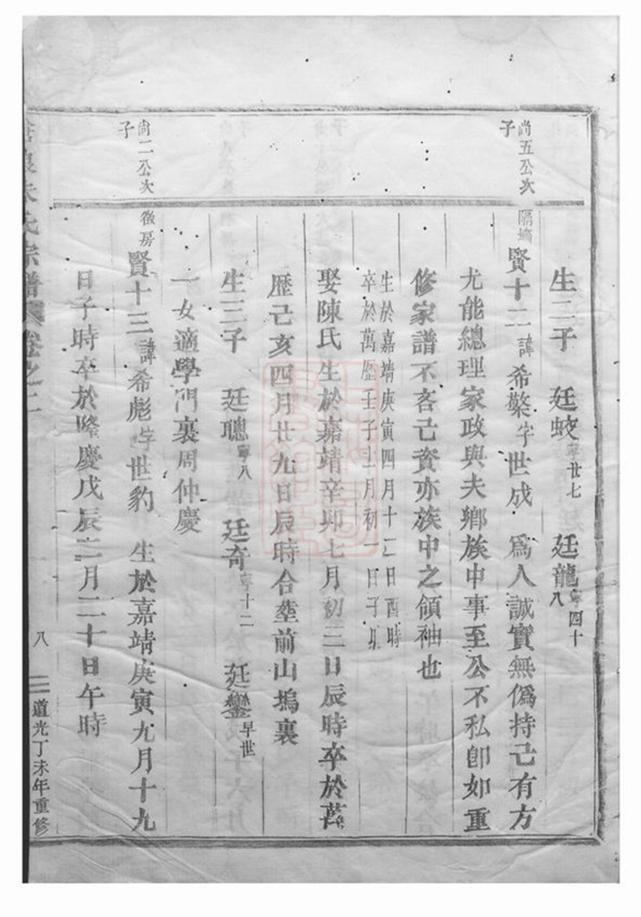 生二子 廷蛟寧廿七 廷龍寧四十八
尚五公次子
隔塘
賢十二諱希檠字世成 爲人誠實無僞持己有方
尤能總理家政與夫鄉族中事至公不私卽如重
修家譜不吝己資亦族中之領袖也
生於嘉靖庚寅四月十二日酉時
卒於萬歷壬子十二月初一日子時
娶陳氏生於嘉靖辛卯七月初三日辰時卒於萬
歷己亥四月廿九日辰時合塟前山塢裏
生三子 廷聰寧八 廷奇寧十二 廷鑾早世
一女適學門裏周仲慶
尚二公次子
後房
賢十三諱希彪字世豹 生於嘉靖庚寅九月十九
日子時卒於隆慶戊辰二月二十日午時
氏宗譜 卷之二
八
道光丁未年重修